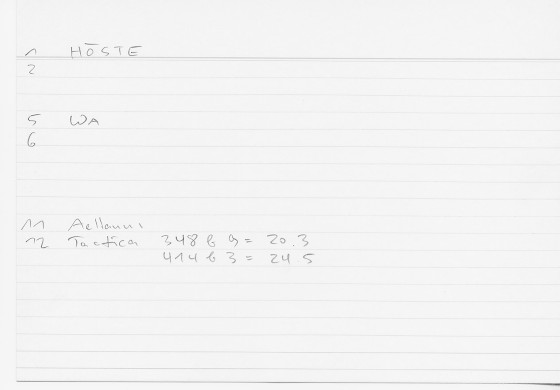 1 HŌSTE
2
5 WA
6
11 Aelianus
12 Tactica 348 b 9 = 20.3
414 b 3 = 24 5